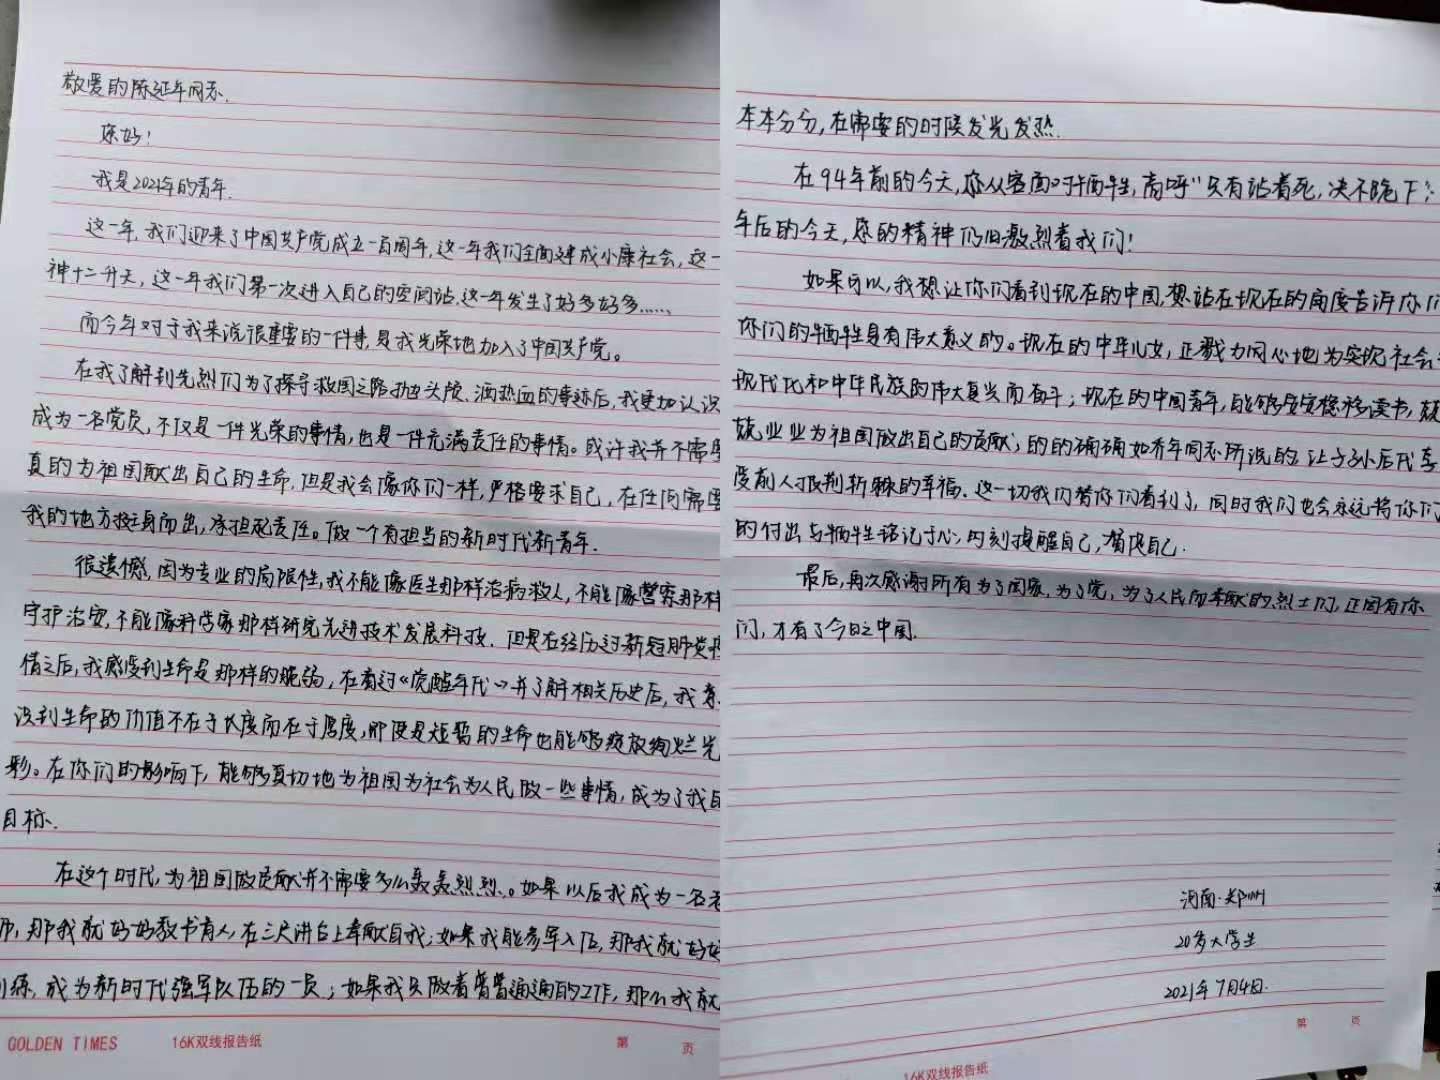 敬爱的陈延年同志.
您好!
我是2021年的青年.
这一年,我们迎来了中国共产党成立一百周年,这一年我们全面建成小康社会,这一
神十二升天,这一年我们第一次进入自己的空间站,这一年发生了好多好多……
而今年对于我来说很重要的一件事,是我光荣地加入了中国共产党。
在我了解到先烈们为了探寻救国之路抛头颅、洒热血的事迹后,我更加认识
成为一名党员,不仅是一件光荣的事情,也是一件充满责任的事情。或许我并不需要
真的为祖国献出自己的生命,但是我会像你们一样,严格要求自己,在任何需要
我的地方挺身而出,承担起责任。做一个有担当的新时代新青年.
很遗憾,因为专业的局限性,我不能像医生那样治病救人,不能像警察那样
守护治安,不能像科学家那样研究先进技术发展科技.但是在经历过新冠肺炎疫
情之后,我感受到生命是那样的脆弱,在看过《觉醒年代》并了解相关历史后,我意
识到生命的价值不在于长度而在于厚度,即便是短暂的生命也能够绽放绚烂光
彩。在你们的影响下,能够真切地为祖国为社会为人民做一些事情,成为了我的
目标.
在这个时代,为祖国做贡献并不需要多么轰轰烈烈.。如果以后我成为一名老
师,那我就好好教书育人,在三尺讲台上奉献自我;如果我能参军入伍,那我就好好
训练,成为新时代强军队伍的一员;如果我只做着普普通通的工作,那么我就
GOLDEN TIMES 16K双线报告纸 第 页
本本分分,在需要的时候发光发热.
在94年前的今天,您从容面对牺牲,高呼"只有站着死,决不跪下";
年后的今天,您的精神仍旧激烈着我们!
如果可以,我想让你们看到现在的中国,想站在现在的角度告诉你们
你们的牺牲是有伟大意义的。现在的中华儿女,正戮力同心地为实现社会
现代化和中华民族的伟大复兴而奋斗;现在的中国青年,能够安安稳稳读书,兢
兢业业为祖国做出自己的贡献;的的确确如乔年同志所说的,让子孙后代享
受前人披荆斩棘的幸福.这一切我们替你们看到了,同时我们也会永远将你们
的付出与牺牲铭记于心,时刻提醒自己,督促自己.
最后,再次感谢所有为了国家,为了党,为了人民而奉献的烈士们,正因有你
们,才有了今日之中国.
河南·郑州
20多大学生
2021年7月4日.
第 页
16K双线报告纸